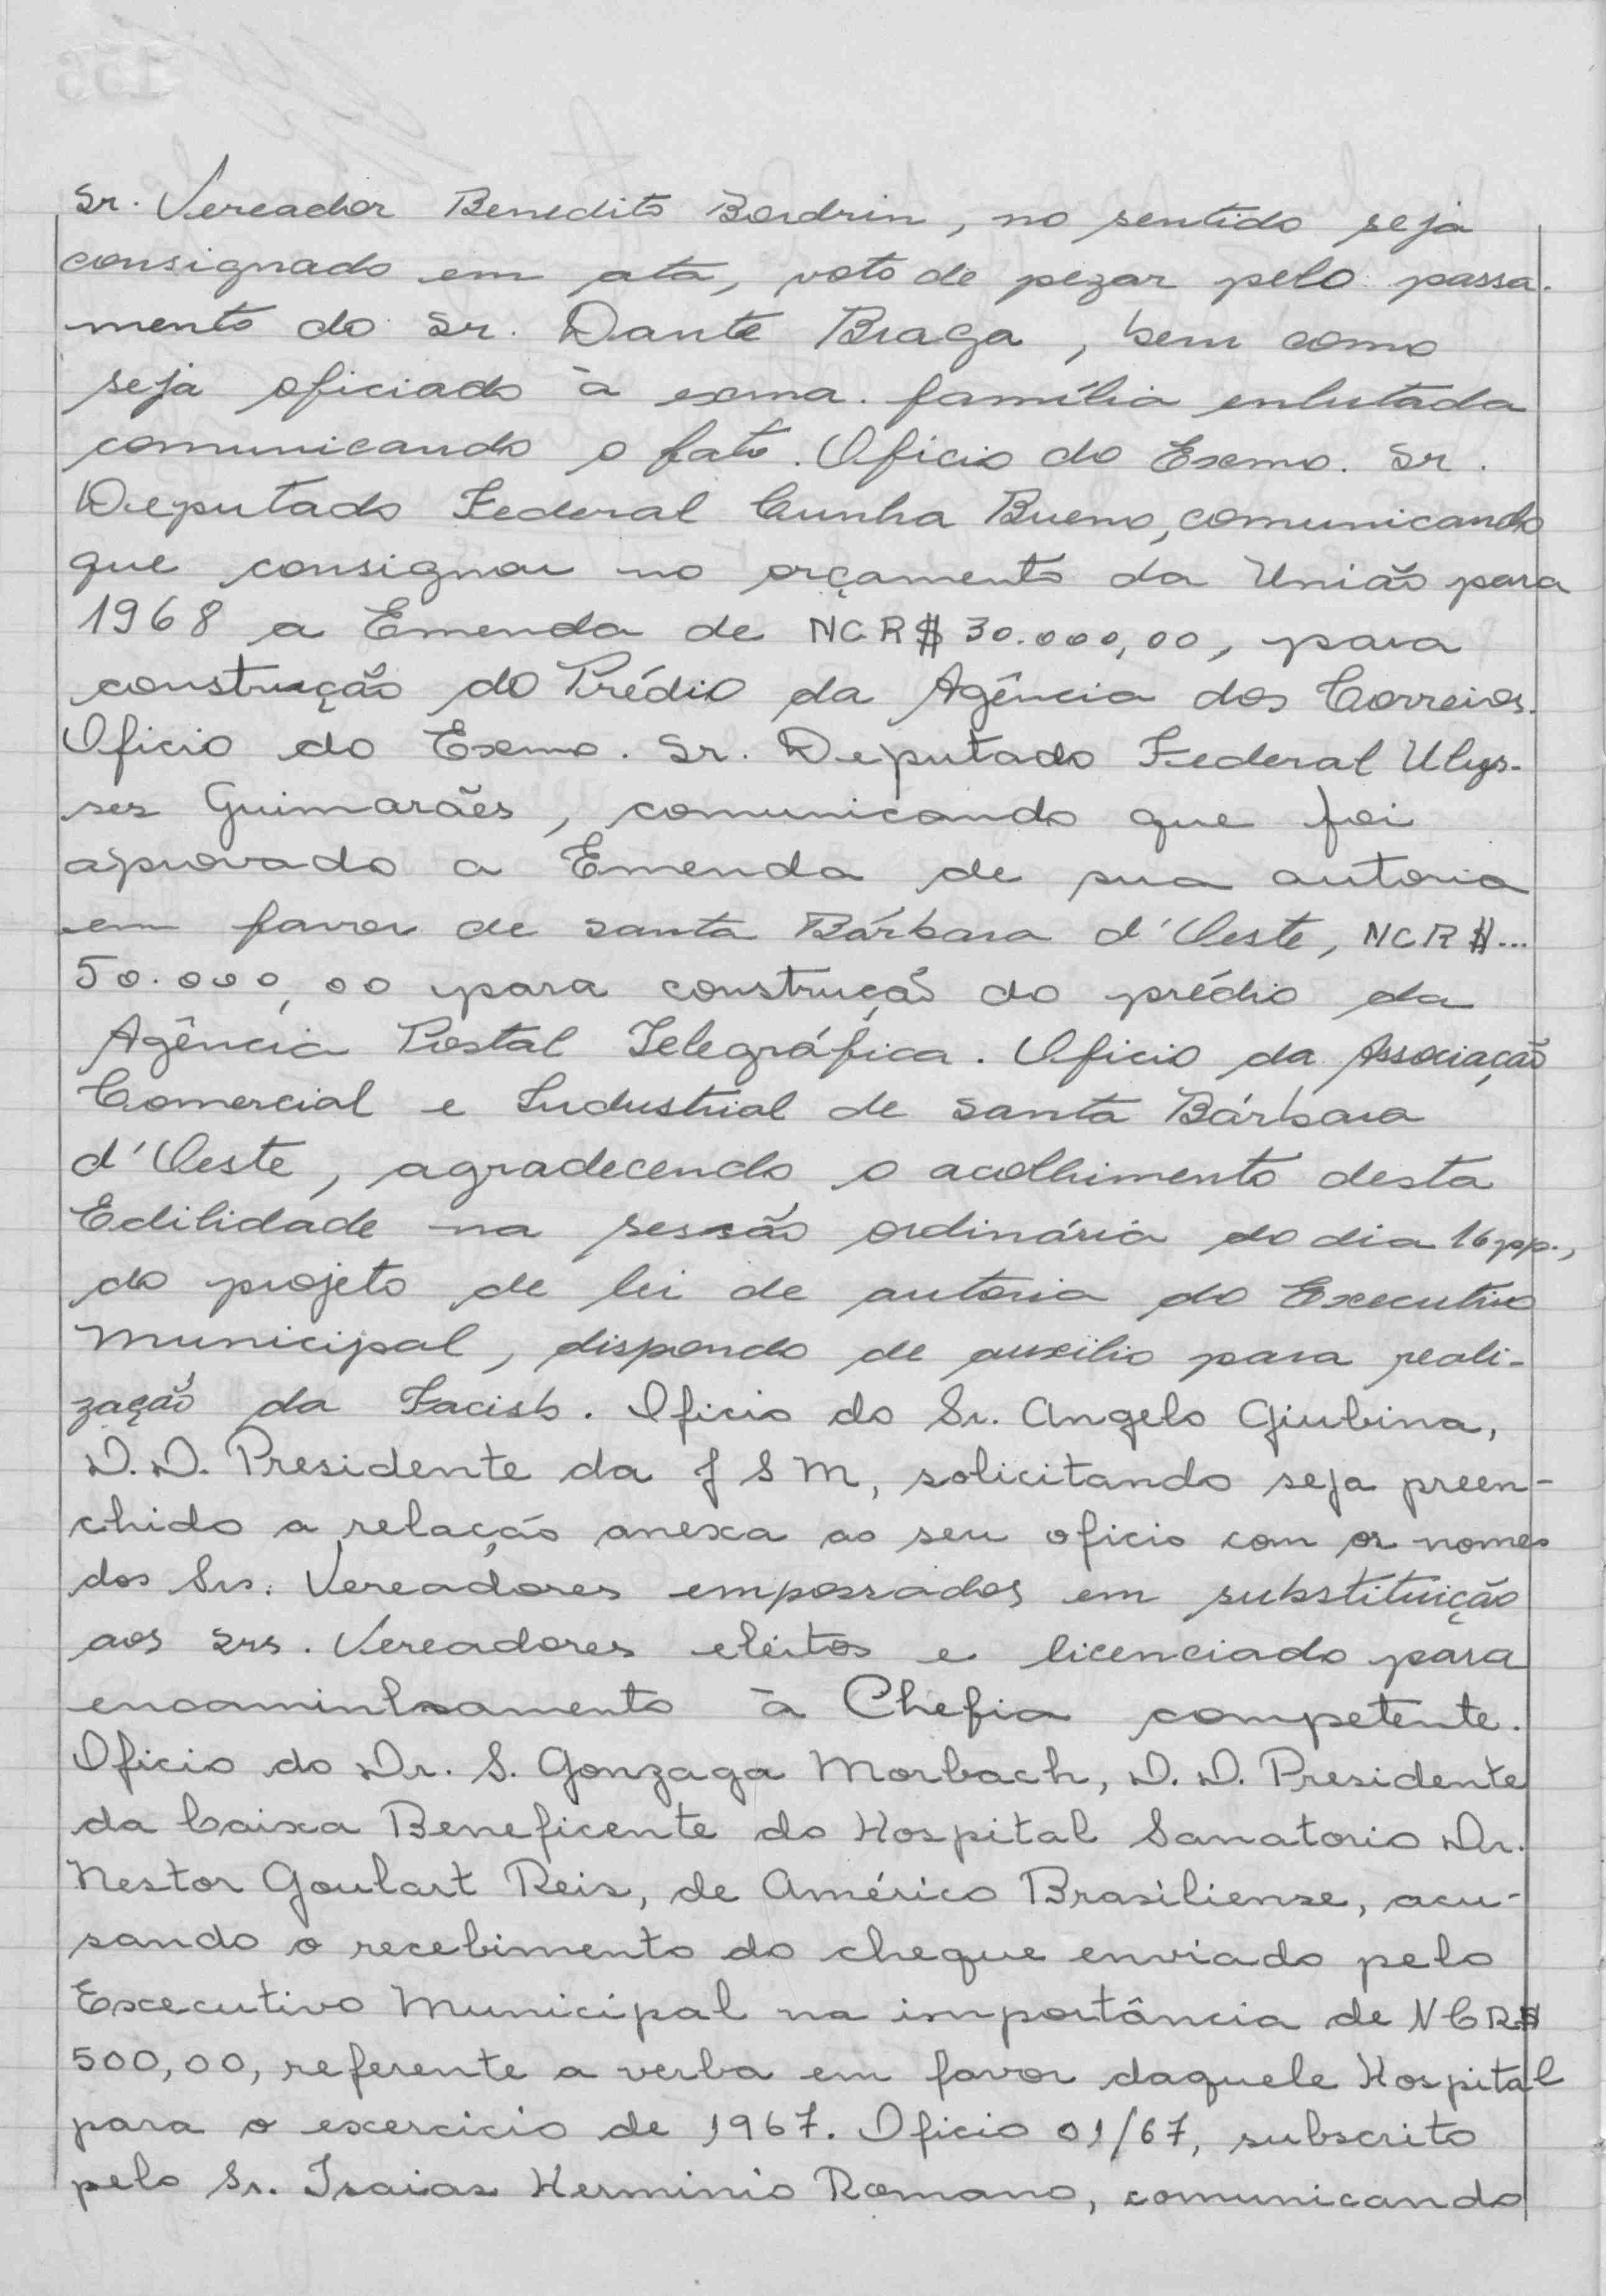 Sr. Vereador Benedito Bordrin, no sentido seja
consignado em ata, voto de pezar pelo passa-
mento do Sr. Dante Braga, bem como
seja oficiado à exma. família enlutada
comunicando o fato. Oficio do Exmo. Sr.
Deputado Federal Cunha Bueno, comunicando
que consignou no orçamento da União para
1968 a Emenda de NCR$ 30.000,00, para
construção do Prédio da Agência dos Correios.
Oficio do Exmo. Sr. Deputado Federal Ulys-
ses Guimarães, comunicando que foi
aprovado a Emenda de sua autoria
em favor de Santa Bárbara d'Oeste, NCR$...
50.000,00 para construção do prédio da
Agência Postal Telegráfica. Oficio da Associação
Comercial e Industrial de Santa Bárbara
d'Oeste, agradecendo o acolhimento desta
Edilidade na sessão ordinária do dia 16 pp.,
do projeto de lei de autoria do Executivo
Municipal, dispondo de auxilio para reali-
zação da Facisb. Oficio do Sr. Angelo Giubina,
D.D. Presidente da J S M, solicitando seja preen-
chido a relação anexa ao seu oficio com os nomes
dos Srs. Vereadores empossados em substituição
aos Srs. Vereadores eleitos e licenciado para
encaminhamento à Chefia competente.
Oficio do Dr. S. Gonzaga Morbach, D.D. Presidente
da Caixa Beneficente do Hospital Sanatorio Dr.
Nestor Goulart Reis, de Américo Brasiliense, acu-
sando o recebimento do cheque enviado pelo
Executivo Municipal na importância de NCR$
500,00, referente a verba em favor daquele Hospital
para o exercicio de 1967. Oficio 01/67, subscrito
pelo Sr. Isaias Herminio Romano, comunicando